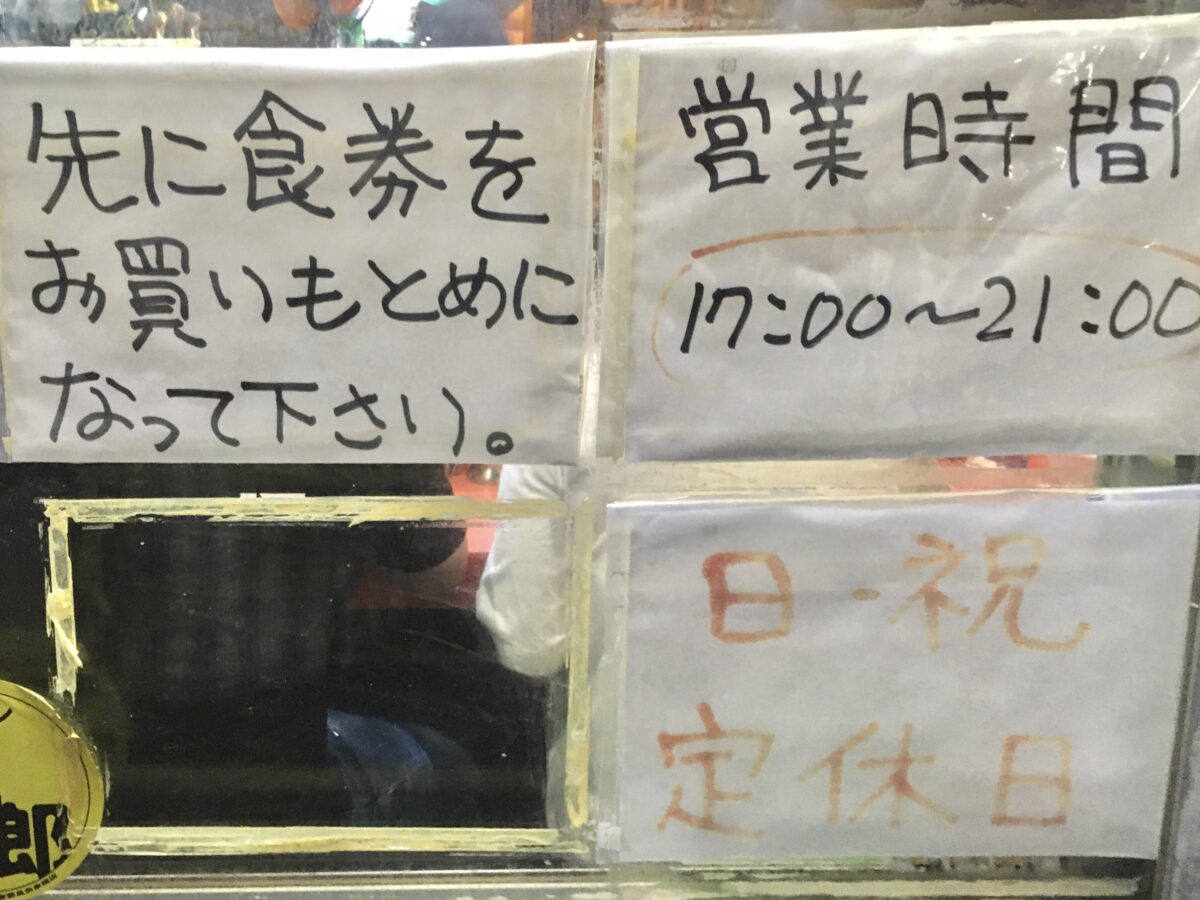 先に食券を
お買いもとめに
なって下さい。
営業時間
17:00～21:00
日・祝
定休日
郎